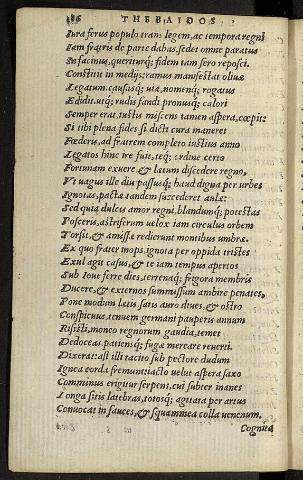 186 THEBAIDOS
Iura ferus populo trans legem, ac tempora regni
Iam fratris de parte dabas, sedet omne paratus
In facinus, queriturq; fidem tam sero reposci.
Constitit in medijs: ramus manifestat oliuæ
Legatum. causasq; uiæ, nomenq; rogatus
Edidit. utq; rudis fandi pronusq; calori
Semper erat, iustis miscens tamen aspera, cœpit:
Si tibi plena fides & dicti cura maneret
Fœderis, ad fratrem completo iustius anno
Legatos hinc ire fuit, teq; ordine certo
Fortunam exuere, & lætum discedere regno,
Vt uagus ille diu passusq; haud digna per urbes
Ignotas, pactæ tandem succederet aulæ:
Sed quia dulcis amor regni, blandumq; potestas
Posceris, astriferum uelox iam circulus orbem
Torsit, & amissæ redierunt montibus umbræ.
Ex quo frater inops, ignota per oppida tristes
Exul agit casus, & te iam tempus apertos
Sub Ioue ferre dies, terrenaq; frigora membris
Ducere, & externos summissum ambire penates,
Pone modum lætis, satis auro diues, & ostro
Conspicuus, tenuem germani pauperis annum
Risisti, moneo regnorum gaudia, temet
Dedoceas, patiensq; fugæ mereare reuerti.
Dixerat: ast illi tacito sub pectore dudum
Ignea corda fremunt: iacto uelut aspera saxo
Comminus erigitur serpens, cui subter inanes
Longa sitis latebras, totosq; agitata per artus
Conuocat in fauces, & squammea colla uenenum.
Cognita